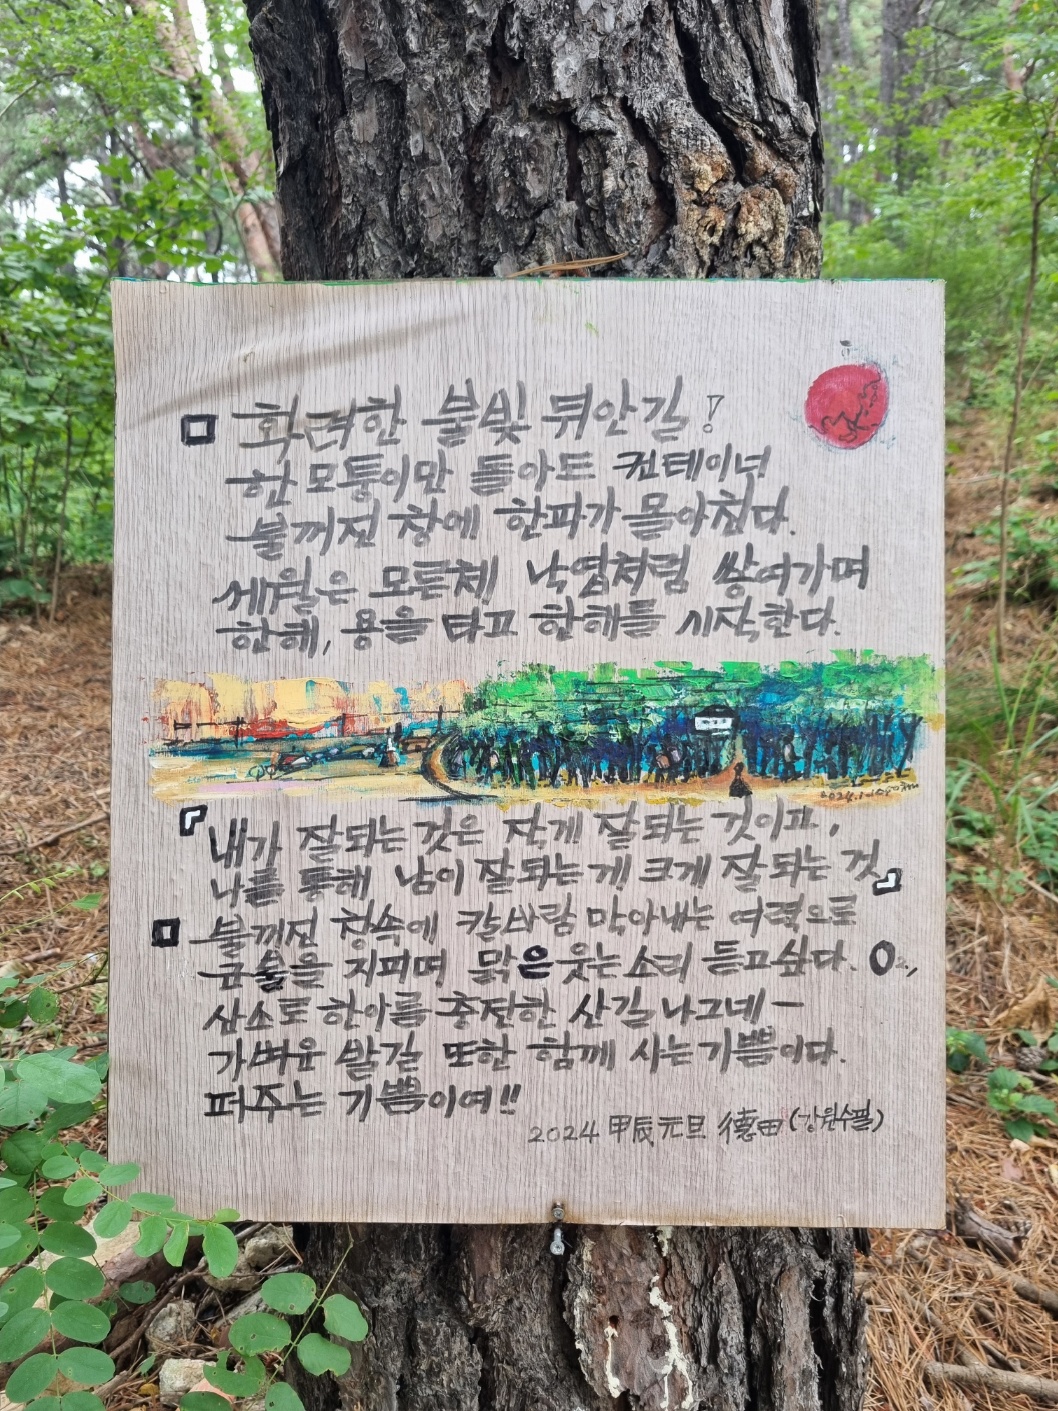 화려한 불빛 뒤안길!
한 모퉁이만 돌아도 컨테이너
불꺼진 창에 한파가 몰아친다.
세월은 모른체 낙엽처럼 쌓여가며
한해, 용을 타고 한해를 시작한다.
『내가 잘되는 것은 작게 잘되는 것이고,
나를 통해 남이 잘되는 게 크게 잘 되는 것』
불꺼진 창속에 칼바람 막아내는 여력으로
군불을 지피며 맑은 웃는 소리 듣고싶다. O2,
산소로 한아름 충전한 산길 나그네ㅡ
가벼운 발길 또한 함께 사는 기쁨이다.
퍼주는 기쁨이여!!
2024 甲辰元旦 德田 (강원수필)